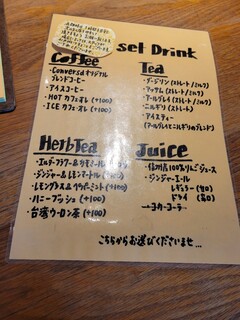 set Drink
Coffee
・Conversa オリジナル
ブレンドコーヒー
・アイスコーヒー
・HOT カフェオレ (+100)
・ICE カフェオレ (+100)
Tea
・ダージリン (ストレート/ミルク)
・アッサム (ストレート/ミルク)
・アールグレイ (ストレート/ミルク)
・ニルギリ (ストレート)
・アイスティー
(アールグレイとニルギリのブレンド)
HerbTea
・エルダーフラワー&カモミール
・ジンジャー&レモンマートル (+100)
・レモングラス&ペパーミント (+100)
・ハニーブッシュ (+100)
・台湾ウーロン茶 (+100)
Juice
・信州産100%りんごジュース
・ジンジャーエール
レギュラー (甘口)
ドライ (辛口)
・コカ・コーラ
こちらからお選びくださいませ...